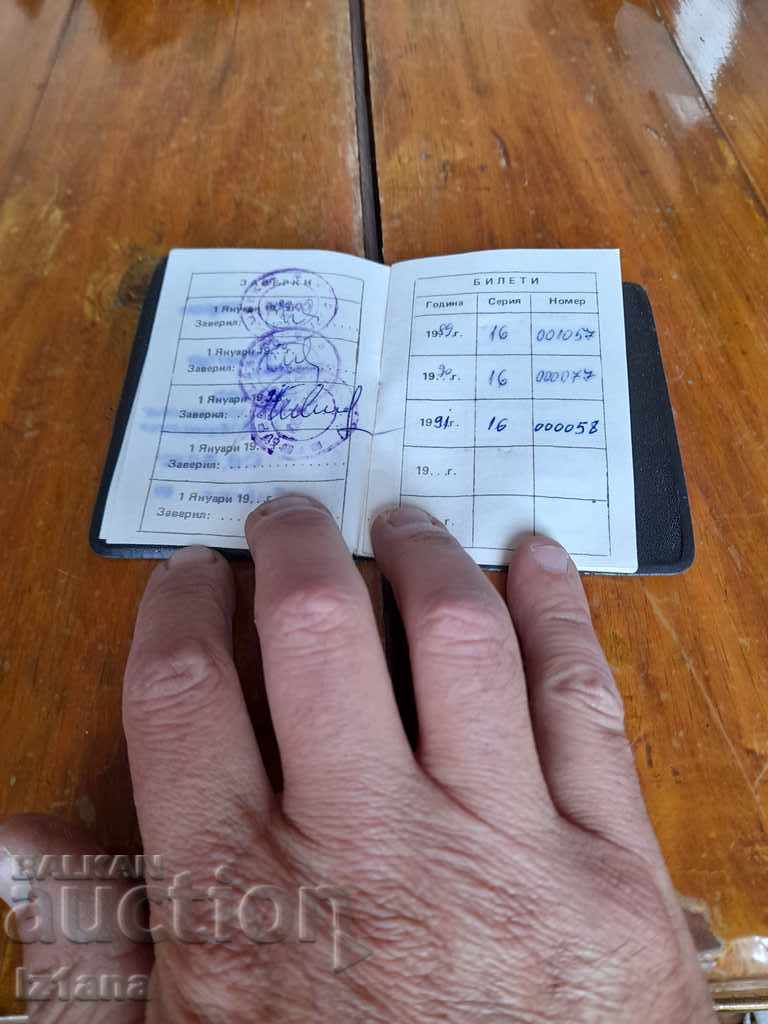 ЗАВЕРКИ
1 Януари 19
Заверил:
1 Януари 19
Заверил:
1 Януари 19
Заверил:
1 Януари 19
Заверил:
1 Януари 19...г
Заверил:
БИЛЕТИ
Година Серия Номер
1989г. 16 001057
1990г. 16 000077
1991г. 16 000058
19...г.
г.
BALKAN
auction
Iz1ana